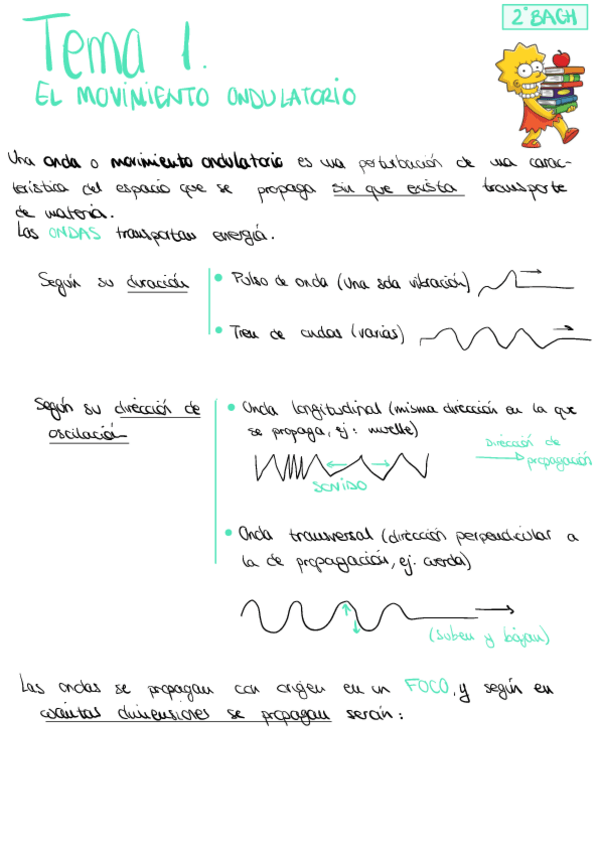 2º BACH
Tema 1.
EL MOVIMIENTO ONDULATORIO
Una onda o movimiento ondulatorio es una perturbación de una carac-
terística del espacio que se propaga sin que exista transporte
de materia.
Las ONDAS transportan energía.
Según su duración
• Pulso de onda (una sola vibración)
• Tren de ondas (varias)
Según su dirección de
oscilación
• Onda longitudinal (misma dirección en la que
se propaga, ej: muelle)
SONIDO
Dirección de
propagación
• Onda transversal (dirección perpendicular a
la de propagación, ej. cuerda)
(suben y bajan)
Las ondas se propagan con origen en un FOCO, y según en
cuántas dimensiones se propagan serán: